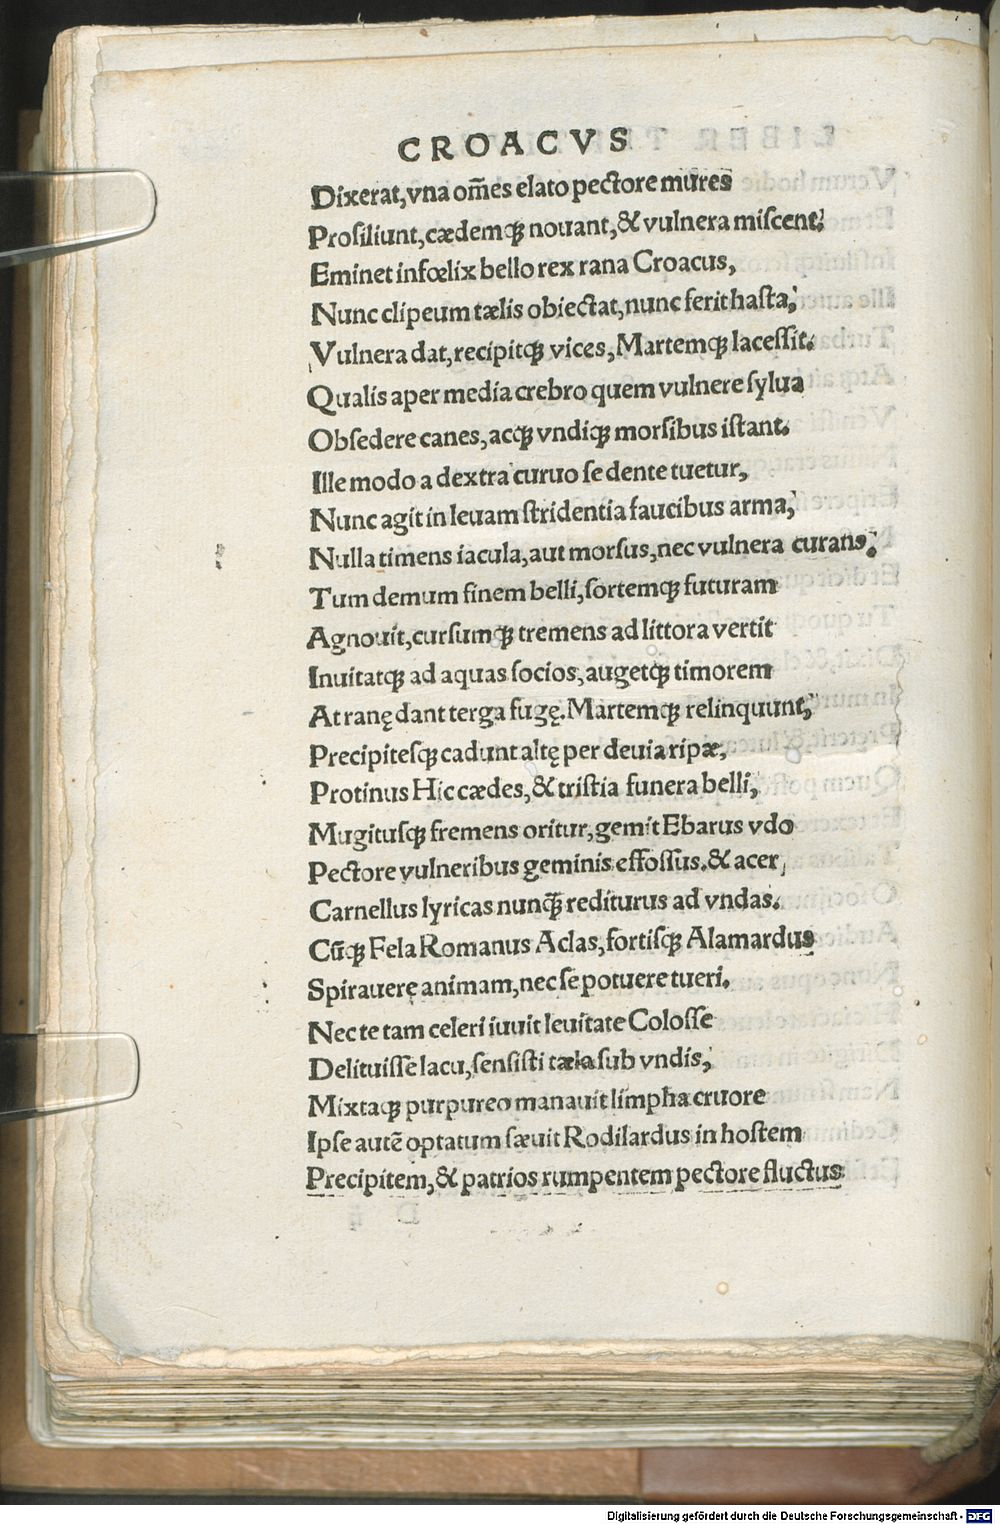 CROACVS
Dixerat,vna om̃es elato pectore mures
Prosiliunt,cædemq́; nouant,& vulnera miscent:
Eminet infœlix bello rex rana Croacus,
Nunc clipeum tælis obiectat,nunc ferit hasta,
Vulnera dat,recipitq́; vices,Martemq́; lacessit.
Qualis aper media crebro quem vulnere sylua
Obsedere canes,acq́; vndiq́; morsibus istant.
Ille modo a dextra curuo se dente tuetur,
Nunc agit in leuam stridentia faucibus arma,
Nulla timens iacula,aut morsus,nec vulnera curans.
Tum demum finem belli,sortemq́; futuram
Agnouit,cursumq́; tremens ad littora vertit
Inuitatq́; ad aquas socios,augetq́; timorem
At ranę dant terga fugę.Martemq́; relinquunt,
Precipitesq́; cadunt altę per deuia ripæ,
Protinus Hic cædes,& tristia funera belli,
Mugitusq́; fremens oritur,gemit Ebarus vdo
Pectore vulneribus geminis effossus.& acer
Carnellus lyricas nunq̃ rediturus ad vndas.
Cũq́; Fela Romanus Aclas,fortisq́; Alamardus
Spirauerę animam,nec se potuere tueri.
Nec te tam celeri iuuit leuitate Colosse
Delituisse lacu,sensisti tæla sub vndis,
Mixtaq́; purpureo manauit limpha cruore
Ipse autẽ optatum sæuit Rodilardus in hostem
Precipitem,& patrios rumpentem pectore fluctus
Digitalisierung gefördert durch die Deutsche Forschungsgemeinschaft - DFG